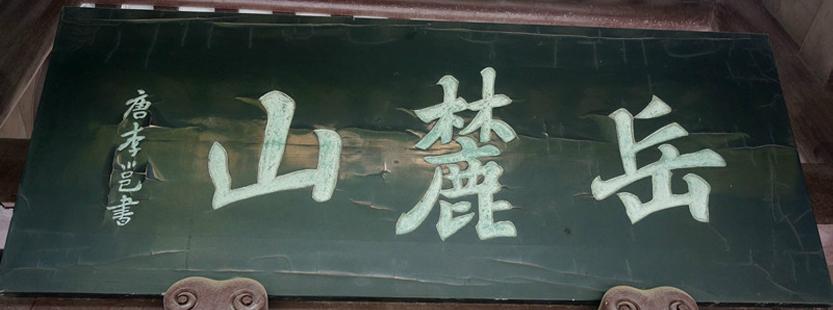 岳麓山
唐李邕書